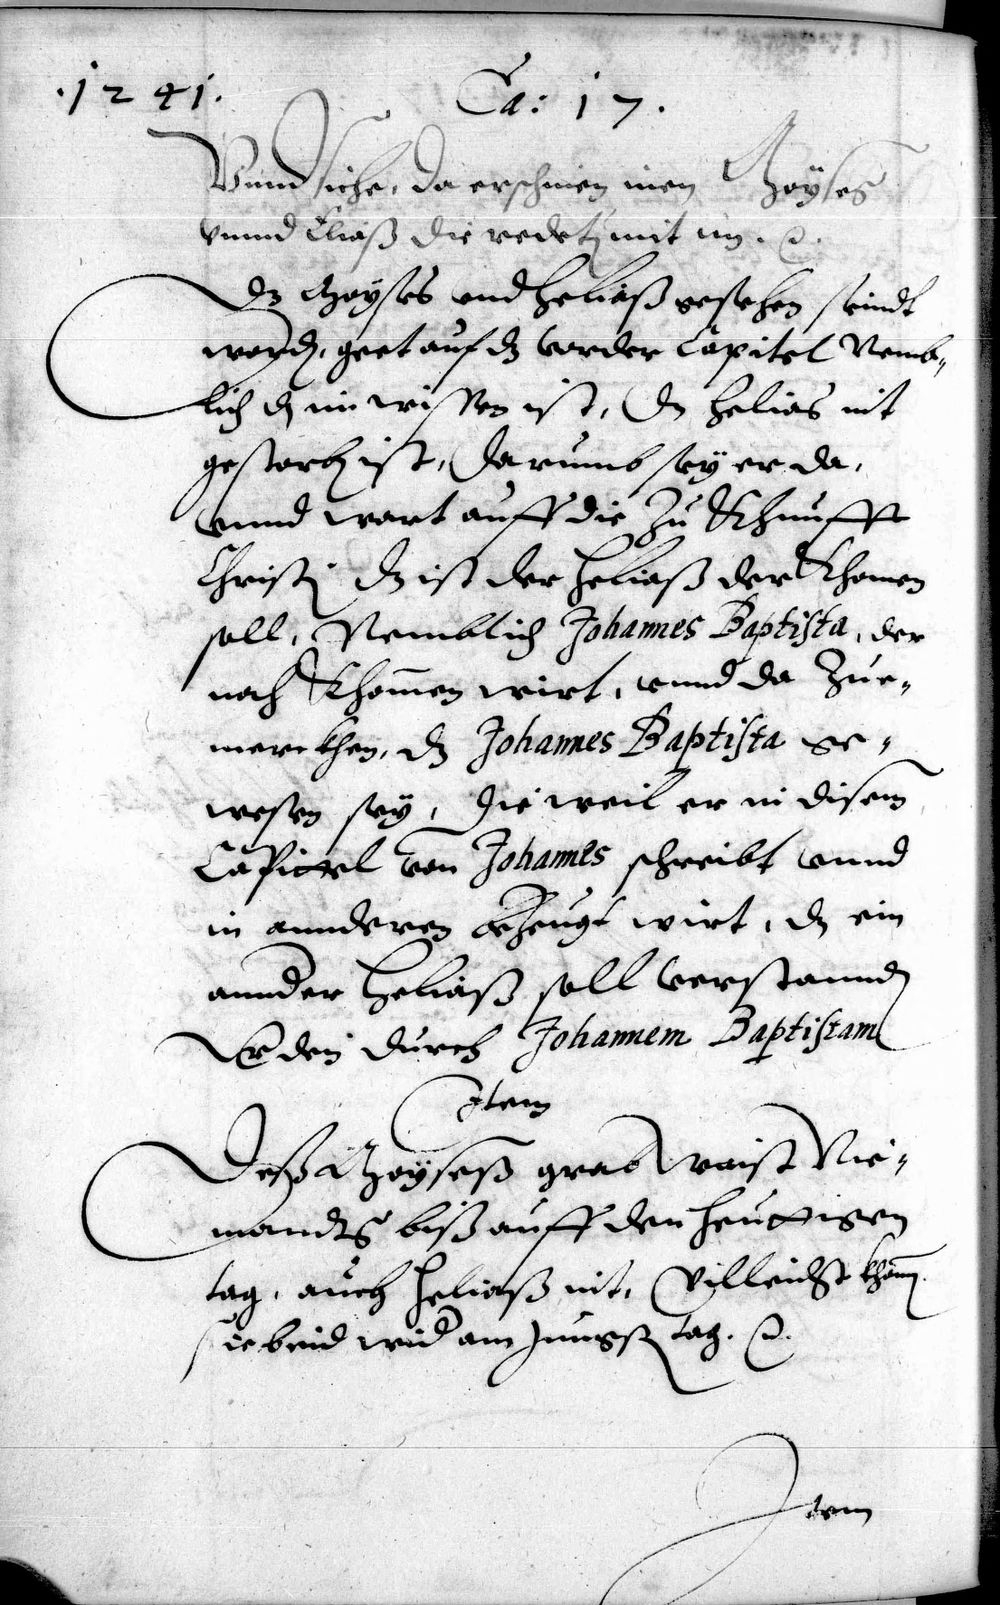 .1241. Ca: 17.
Vnnd siche, da erschinen inen Moÿses
vnnd Eliaß die redetn mit im. ꝛc.
Dz Moÿses vnd Heliaß gesehen seindt
wordn, geet auf dz vorder Capitel Nemb„
lich dz im wissen ist, dz Helias nit
gestorbn ist, darumb seÿ er da,
vnnd wart auff die Zu Khunfft
Christi dz ist der Heliaß der Khomen
soll, Nemblich Johannes Baptista, der
noch Khom̄en wirt, vnnd da Zue„
merckhen, dz Johannes Baptista ge„
wesen seÿ, Die weil er in disem
Capittel von Johannes schreibt vnnd
in annderen bezeugt wirt, dz ein
annder Heliaß soll verstanndn
werden durch Johannem Baptistam
Item
Deß Moÿseß grab waist Nie„
mandts biß auff den heuttigen
tag, auch Heliaß nit, Villeicht khom̄
sie beid wid am Jungstn tag. ꝛc.
Item